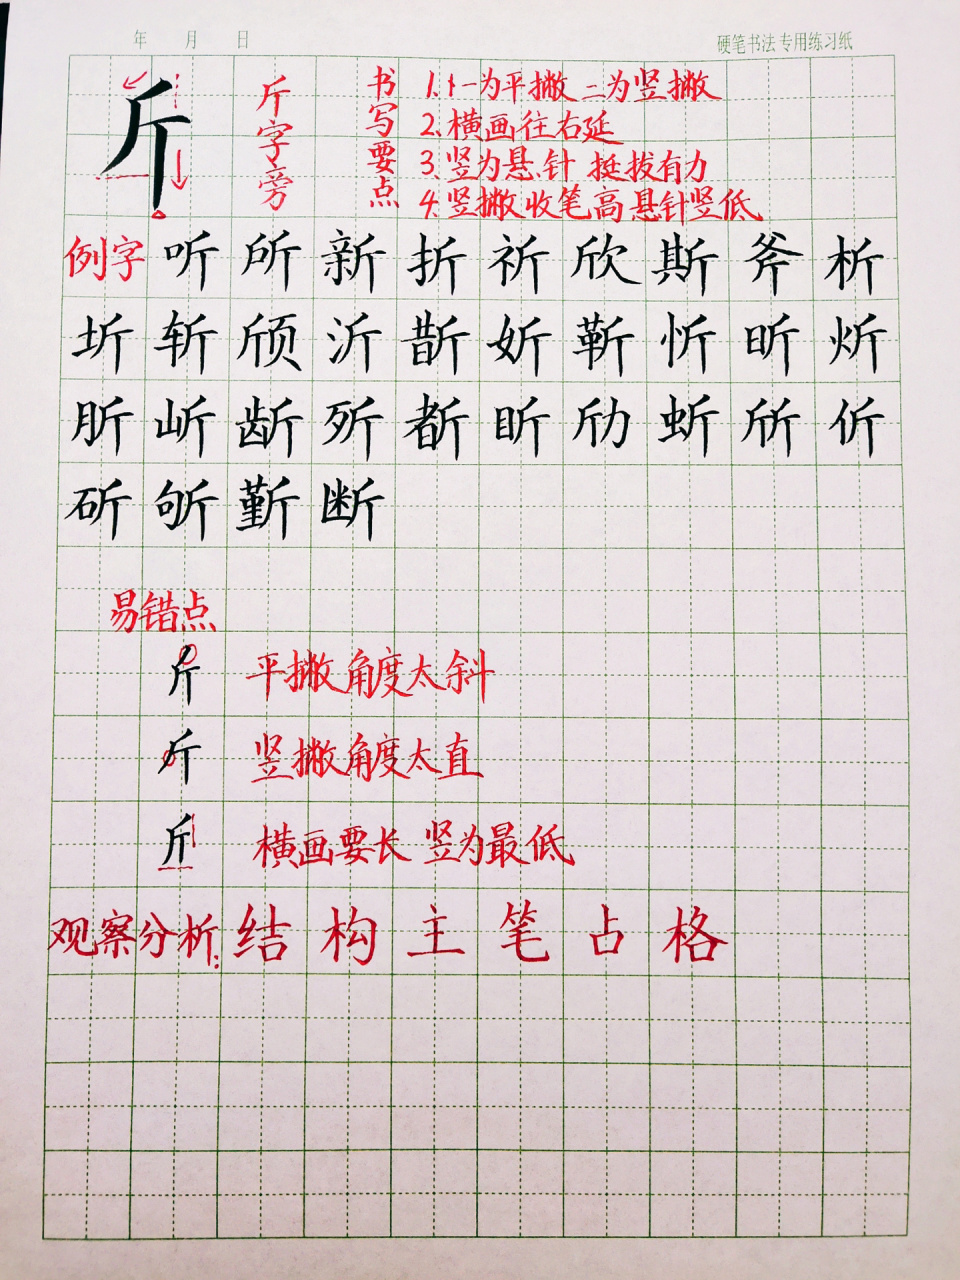 年 月 日 硬笔书法专用练习纸
斤 斤字旁 书写要点
1.一为平撇 二为竖撇
2.横画往右延
3.竖为悬针 挺拔有力
4.竖撇收笔高 悬针竖低
例字 听 所 新 折 祈 欣 斯 斧 析
圻 斩 颀 沂 斮 妡 靳 忻 昕 炘
肵 岓 龂 歽 㪽 盺 劤 蚚 斦 伒
斫 斪 斳 断
易错点
斤 平撇角度太斜
斤 竖撇角度太直
斤 横画要长 竖为最低
观察分析: 结 构 主 笔 占 格